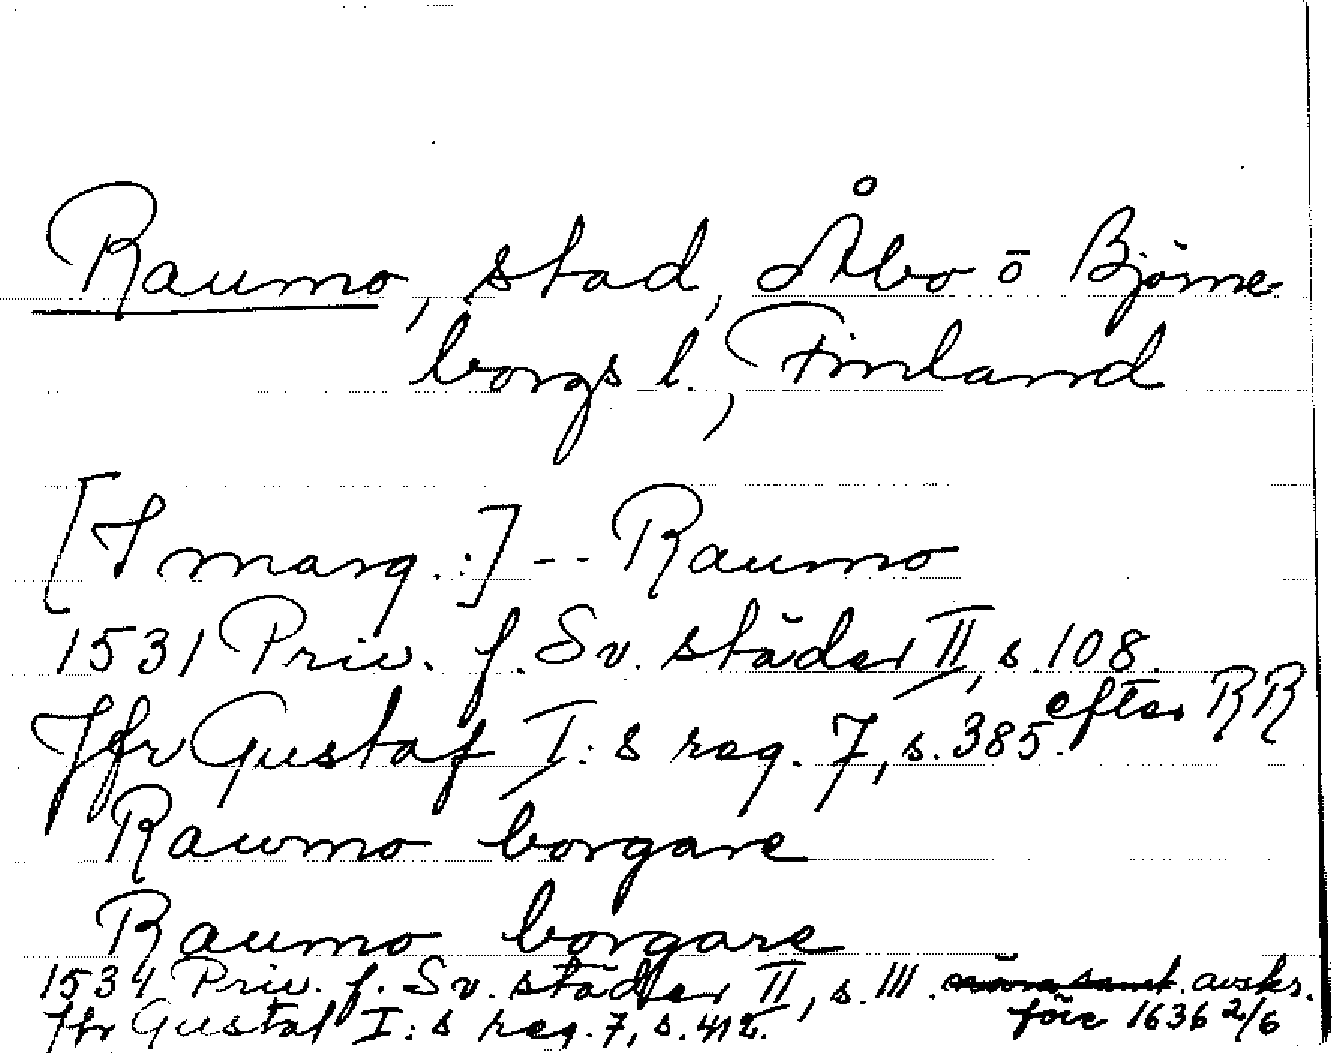 Raumo, stad, Åbo o Björne
borgs l., Finland
[I marg.:] -- Raumo
1531 Priv. f. Sv. städer II, s. 108.
Jfr Gustaf I:s reg. 7, s. 385. efter RR
Rawmo borgare
Raumo borgare
1534 Priv. f. Sv. städer II, s. 111. avskr.
Jfr Gustaf I:s reg. 7, s. 412. före 1636 2/6